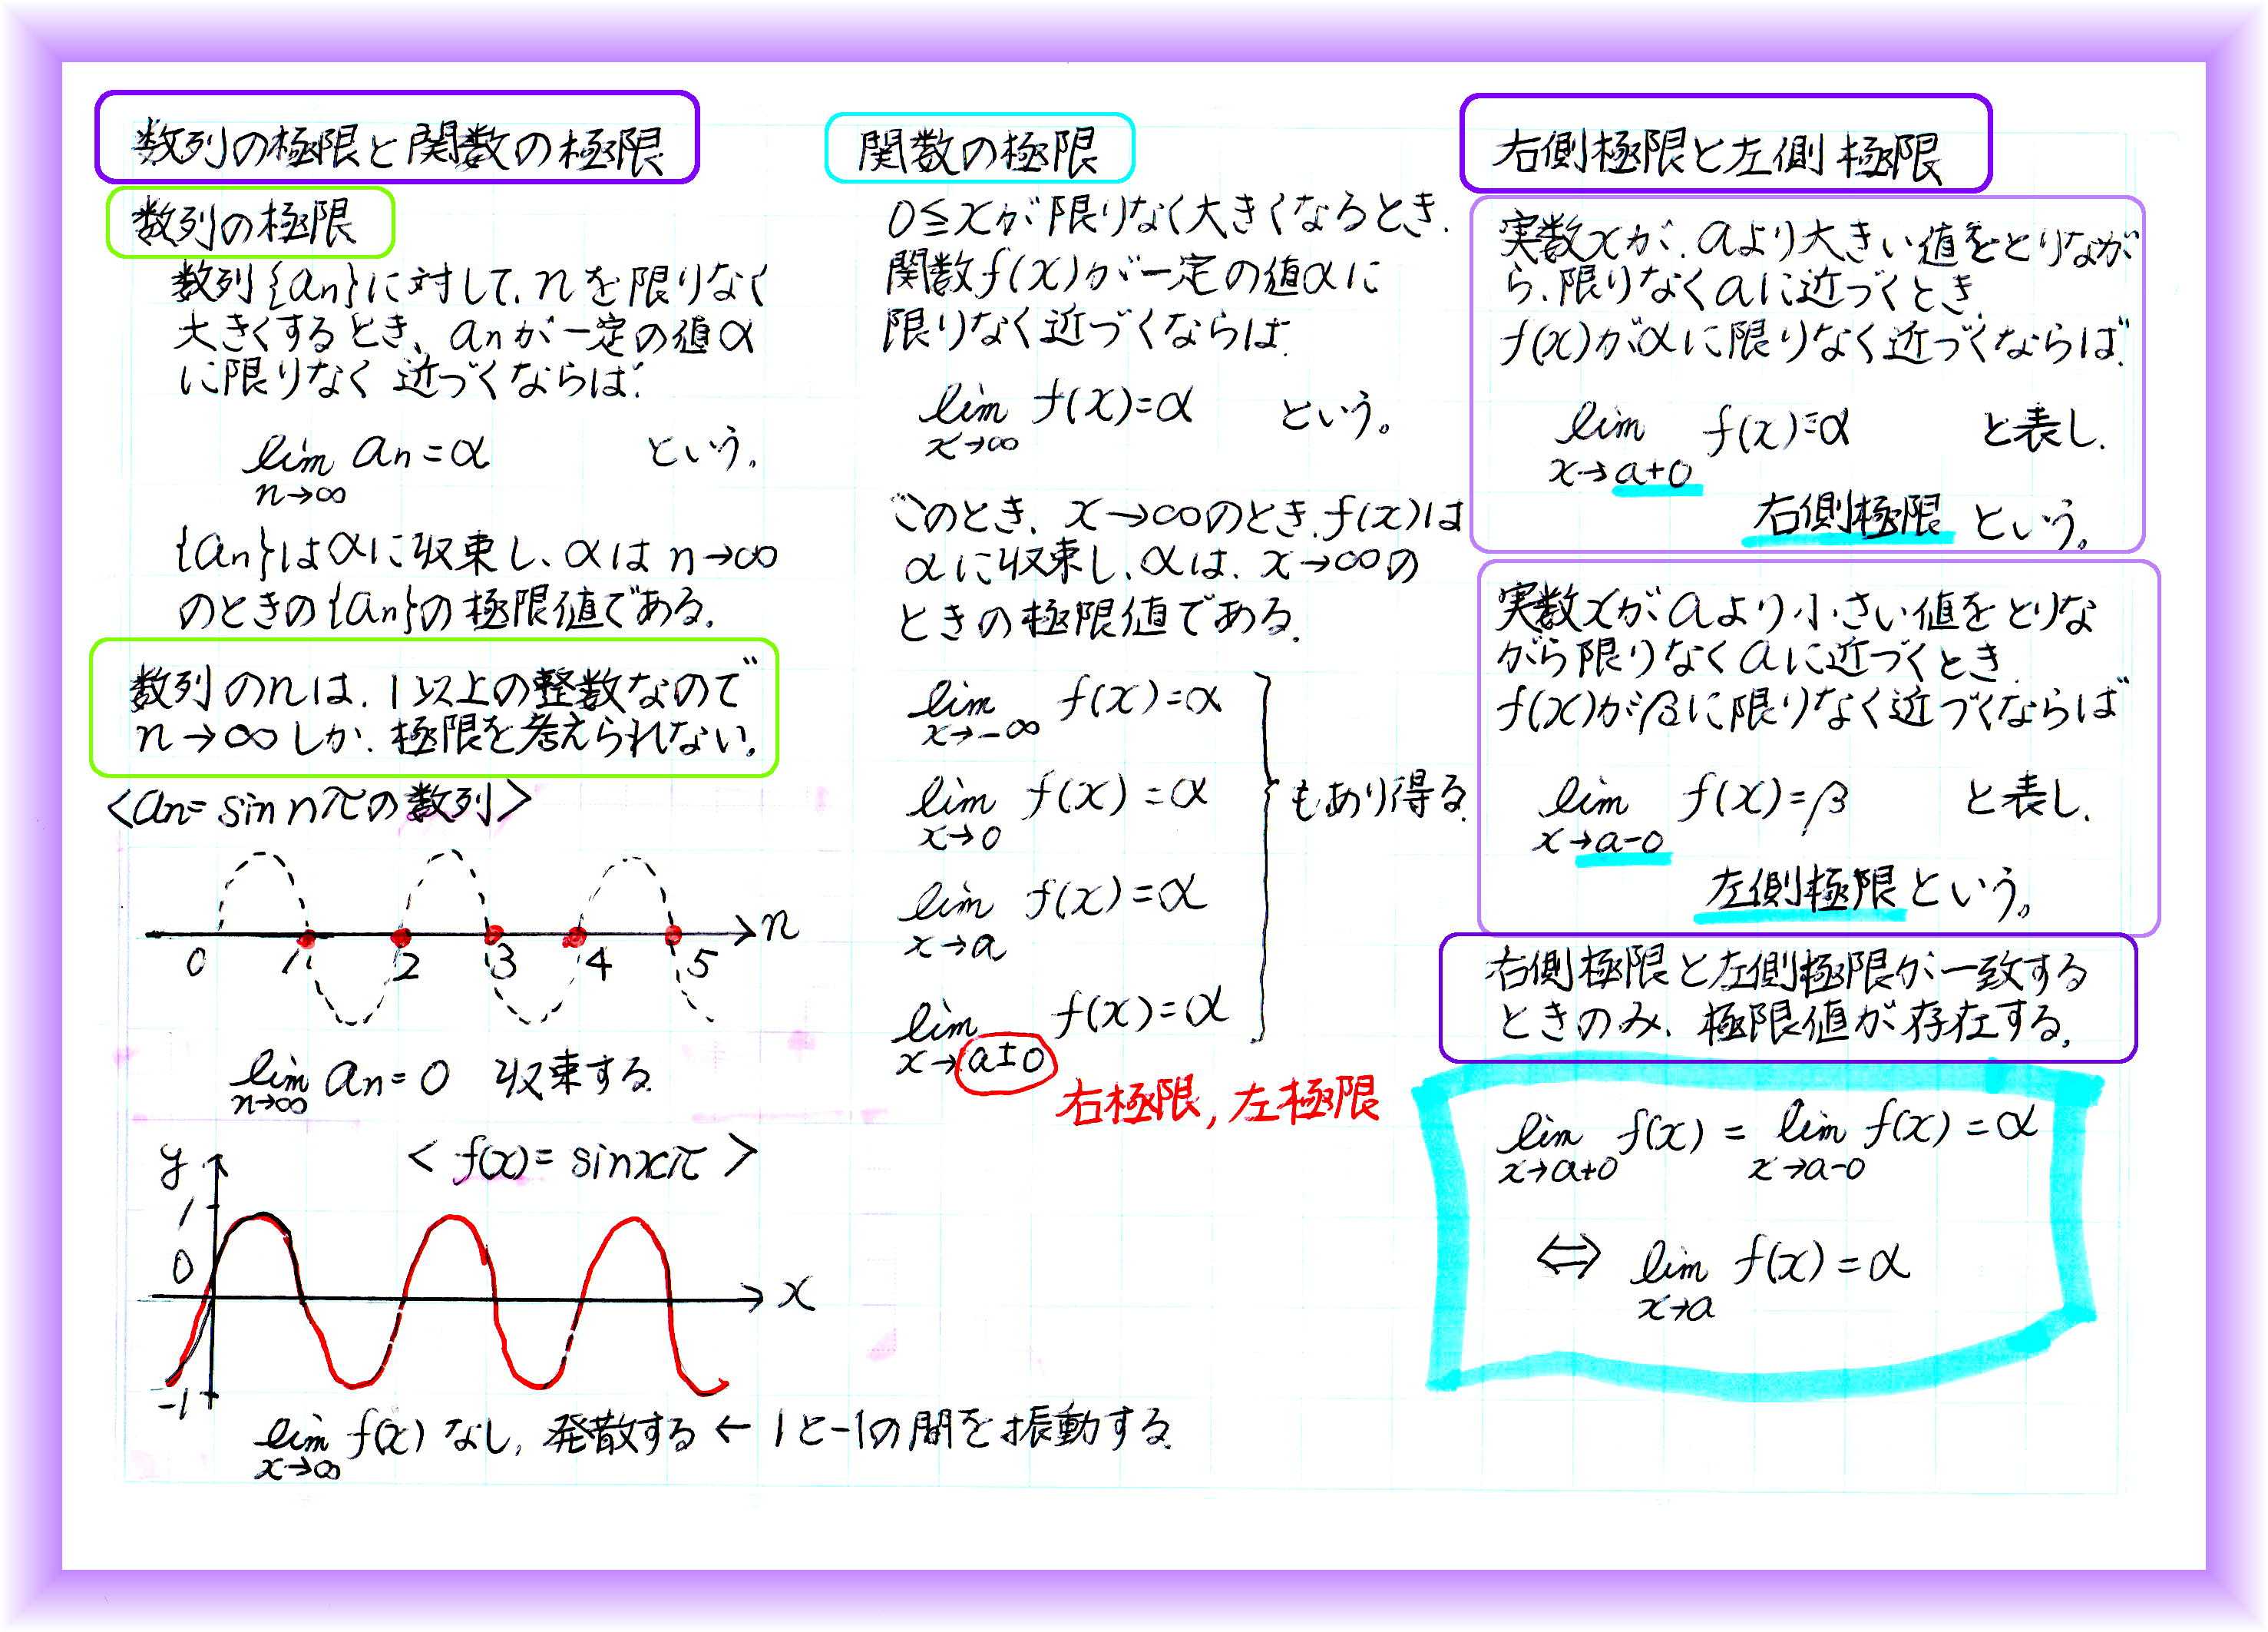 数列の極限と関数の極限
数列の極限
数列{an}に対して、nを限りなく
大きくするとき、anが一定の値α
に限りなく近づくならば、
lim an=α という。
n→∞
{an}はαに収束し、αはn→∞
のときの{an}の極限値である。
数列のnは、1以上の整数なので
n→∞しか、極限を考えられない。
<an=sin nπの数列>
n
0 1 2 3 4 5
lim an=0 収束する。
n→∞
y <f(x)=sinxπ>
1
0
x
-1
lim f(x) なし, 発散する ← 1と-1の間を振動する。
x→∞
関数の極限
0≦xが限りなく大きくなるとき、
関数f(x)が一定の値αに
限りなく近づくならば、
lim f(x)=α という。
x→∞
このとき、x→∞のとき、f(x)は
αに収束し、αは、x→∞の
ときの極限値である。
lim f(x)=α
x→-∞
lim f(x)=α もあり得る。
x→0
lim f(x)=α
x→a
lim f(x)=α
x→a±0
右極限, 左極限
右側極限と左側極限
実数xが、aより大きい値をとりなが
ら、限りなくaに近づくとき、
f(x)がαに限りなく近づくならば、
lim f(x)=α と表し、
x→a+0
右側極限 という。
実数xがaより小さい値をとりな
がら限りなくaに近づくとき、
f(x)がβに限りなく近づくならば
lim f(x)=β と表し、
x→a-0
左側極限という。
右側極限と左側極限が一致する
ときのみ、極限値が存在する。
lim f(x) = lim f(x) = α
x→a+0 x→a-0
⇔ lim f(x)=α
x→a